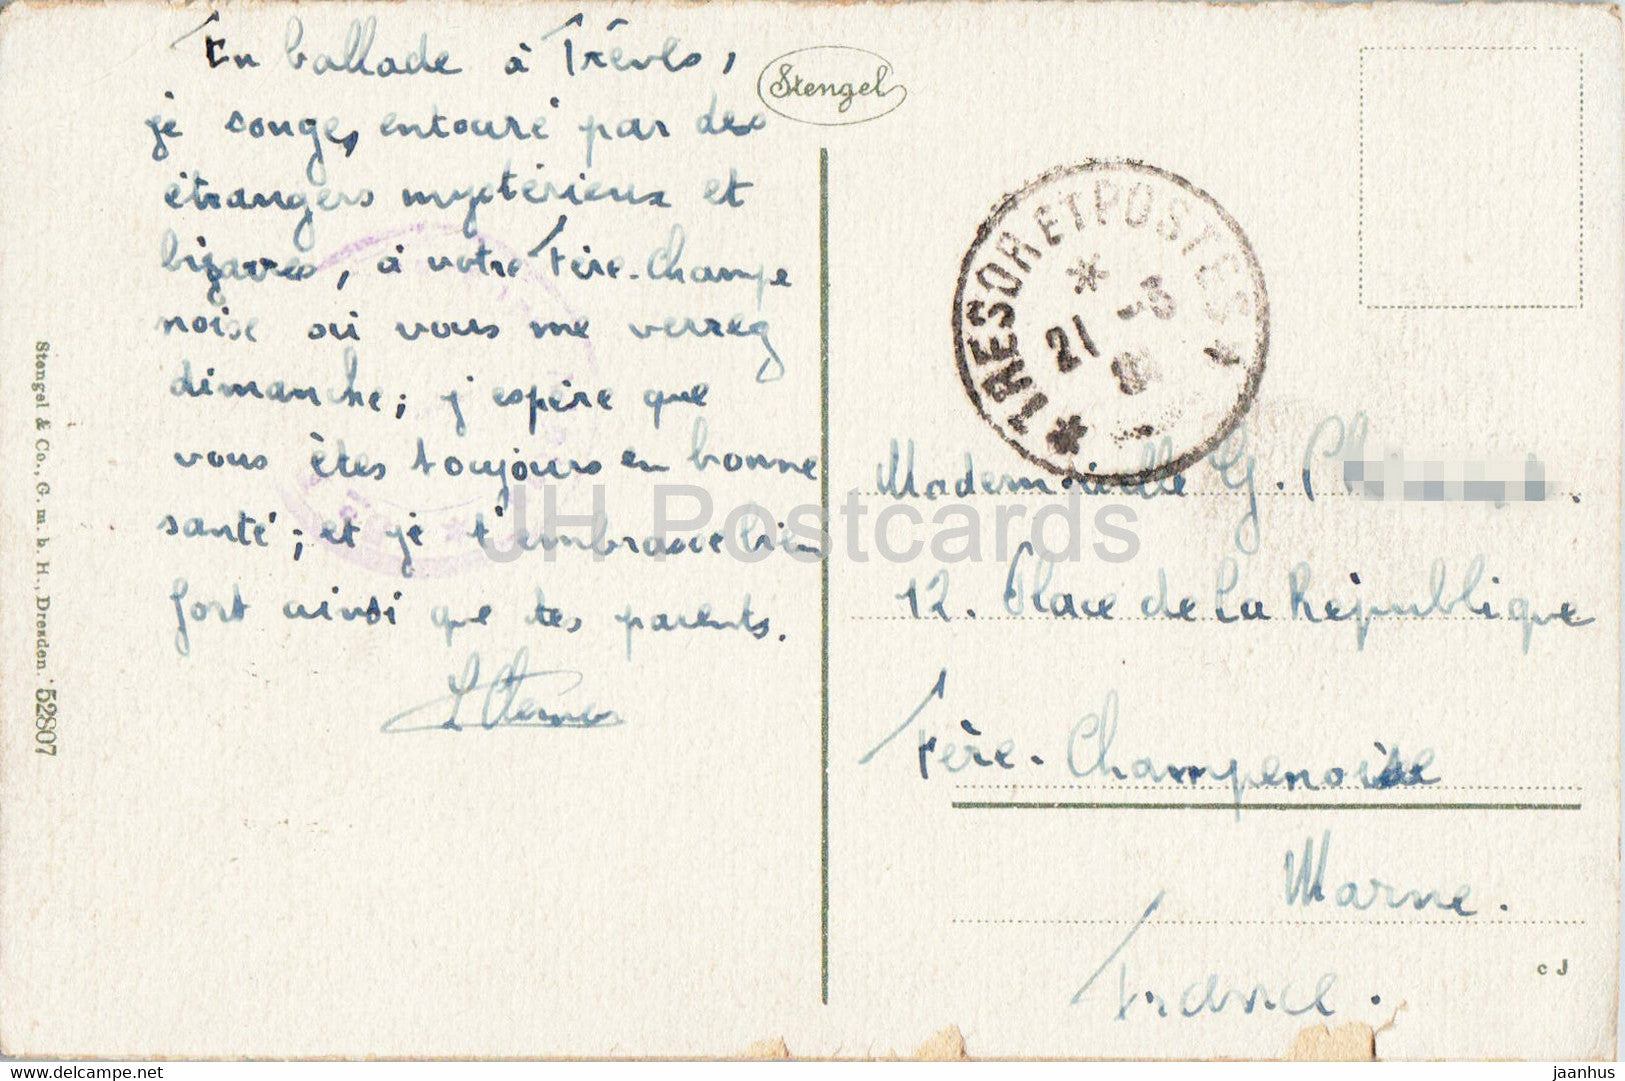 En ballade à Trèves,
je songe, entouré par des
étrangers mystérieux et
bizarres, à votre Fère-Champe
noise où vous me verrez
dimanche; j'espère que
vous êtes toujours en bonne
santé; et je t'embrasse bien
fort ainsi que tes parents.
Stengel
TRESOR ET POSTES
21 -3
Mademoiselle G.
12. Place de la République
Fère-Champenoise
Marne.
France.
c J
Stengel & Co., G. m. b. H., Dresden. 52807
JH Postcards
delcampe.net
jaanhus